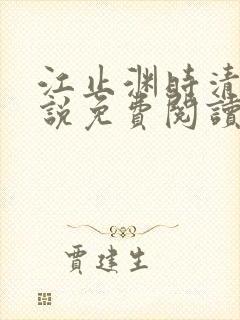 江止渊時清
說免費閱讀
賈建生